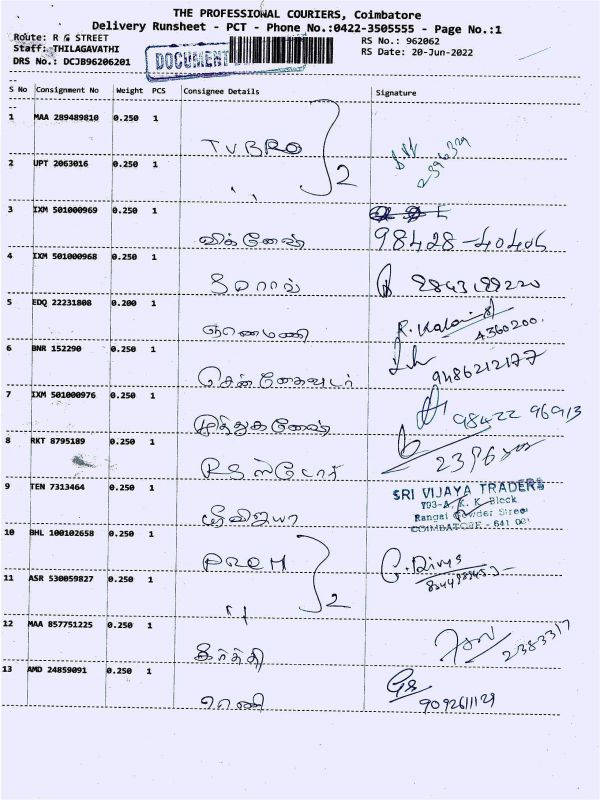 THE PROFESSIONAL COURIERS, Coimbatore
Delivery Runsheet - PCT - Phone No.:0422-3505555 - Page No.:1
Route: R G STREET
RS No.: 962062
Staff: THILAGAVATHI
DOCUMENT
RS Date: 20-Jun-2022
DRS No.: DCJB96206201
S No Consignment No Weight PCS Consignee Details Signature
1 MAA 289489810 0.250 1
TVBRO 2
2 UPT 2063016 0.250 1
3 IXM 501000969 0.250 1
விக்னேஷ் 98428-40406
4 IXM 501000968 0.250 1
9843188220
5 EDQ 22231808 0.200 1
4360200
6 BNR 152290 0.250 1
9486212177
7 IXM 501000976 0.250 1
முத்துகணேஷ் 98422 96913
8 RKT 8795189 0.250 1
RS ஸ்டோர்
9 TEN 7313464 0.250 1
SRI VIJAYA TRADERS
793-A, K. K. Block
Rangai Gowder Street
COIMBATORE - 641 001
ஸ்ரீவிஜயா
10 BHL 100102658 0.250 1
PREM 2
G. Divya
11 ASR 530059827 0.250 1
12 MAA 857751225 0.250 1
கீர்த்தி 2383317
13 AMD 24859091 0.250 1
9092611129